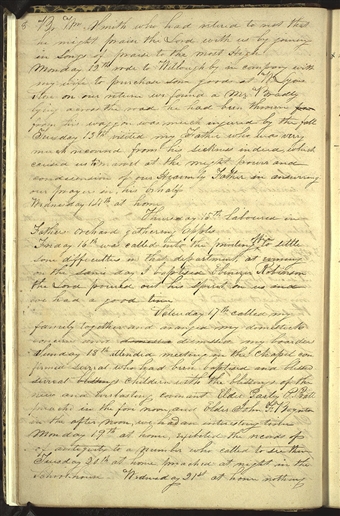 by Wm Smith who had interd to not that
we might praise the Lord with us by joining
in Songs of praise to the most High
Monday 12th rode to Willoughby in company with
my wife to purchase some goods at W. Lyons
Store on our return we found a Mr. Bradly
lying across the road he had been thrown from
his waggon was much injured by the fall
Tuesday 13th visited my Father who was very
much recoverd from his sickness indeed, which
caused us to marvel at the might power and
condesension of our Heavenly Father in answering
our prayers in his behalf
Wednesday 14th at home
Thursday 15th Laboured in
Fathers orchard gathering apples
Friday 16th was called into the printing to settle
some difficulties in that department, at evening
on the same day I baptised Ebenezer Robinson
the Lord poured out his spirit on us and
we had a good time
Saturday 17th called my
family together and arranged my domestick
concerns and dismissed my boarders
Sunday 18th attended meeting in the chapel con
firmed several who had been baptised and blessed
several children with the blessings of the
new and everlasting covenant Elder Parley P. Pratt
preachd in the fore noon and Elder John F. Boynton
in the after noon, we had an interesting time
Monday 19th at home, exibited the records of
antiquity to a number who called to see them
Tuesday 20th at home preached at night in the
School house
Wednesday 21st at home nothing